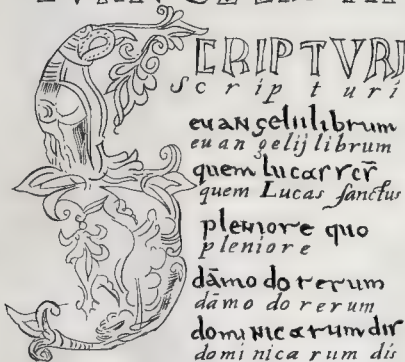 SCRIPTURI
S c r i p t u r i
euangeliilibrum
euangelij librum
quem lucas scs̄
quem Lucas sanctus
pleniore quo
pleniore
dāmo do rerum
dāmo do rerum
dominicarumdis
domi nica rum dis